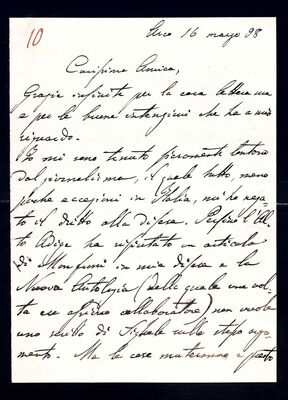 10
Arco 16 marzo 98
Carissimo Amico,
Grazie infinite per la cara lettera ma
e per le buone intenzioni che ha a mio
riguardo.
Io mi sono tenuto pienamente lontano
dal giornalismo, il quale tutto, meno
poche eccezioni in Italia, mi ha nega-
to il dritto alla difesa. Persino l'Al-
to Adige ha rifiutato un articolo
di in mia difesa e la
Nuova Antologia (della quale una vol-
ta ero assiduo collaboratore) non vuole
uno scritto di Sighele sullo stesso argo-
mento. Ma le cose muteranno e presto